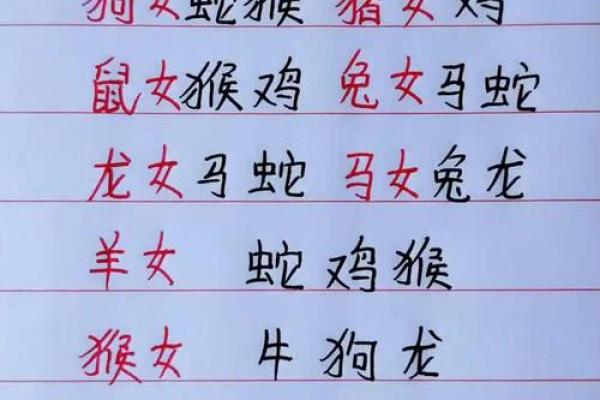 狗女蛇猴 猪女鸡
鼠女猴鸡 兔女马蛇
龙女马蛇 马女兔龙
羊女 蛇鸡猴
猴女 牛狗龙